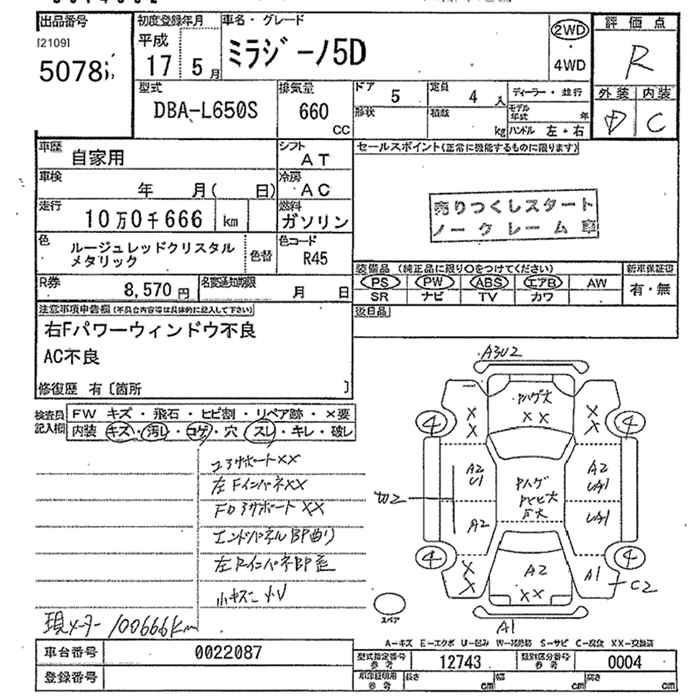 出品番号
I21091
5078
初度登録年月
平成
17 5月
車名・グレード
ミラジーノ5D
2WD
・
4WD
評価点
R
外装 内装
D C
型式
DBA-L650S
排気量
660
CC
ドア
5
定員
4 人
形状
積載
kg
ディーラー・並行
モデル年式 年
ハンドル 左・右
車歴
自家用
シフト
AT
車検
年 月( 日)
冷房
AC
走行
10万0千666 km
燃料
ガソリン
色
ルージュレッドクリスタル
メタリック
色替
色コード
R45
R券
8,570円
名変通知期限
月 日
セールスポイント(正常に機能するものに限ります)
売りつくしスタート
ノークレーム車
装備品 (純正品に限り○をつけてください)
PS PW ABS エアB AW
SR ナビ TV カワ
新車保証書
有・無
後日品
注意事項申告欄(不具合内容等は具体的に記入して下さい)
右Fパワーウィンドウ不良
AC不良
修復歴 有〔箇所 〕
検査員
記入欄
FW キズ・飛石・ヒビ割・リペア跡・×要
内装 キズ・汚レ・コゲ・穴・スレ・キレ・破レ
コアサポートXX
左FインパネXX
XX
エンドパネルBP曲り
現メーター 100666km
A3U2
XX
XX
XX
4
4
A2
U1
A2
A2
UA1
UA1
A2
XX
XX
4
4
A1
C2
A1
スペア
A-キズ E-エクボ U-凹み W-補修跡 S-サビ C-腐食 XX-交換済
車台番号
0022087
登録番号
型式指定番号
参考
12743
類別区分番号
参考
0004
長さ cm
幅 cm
高さ cm